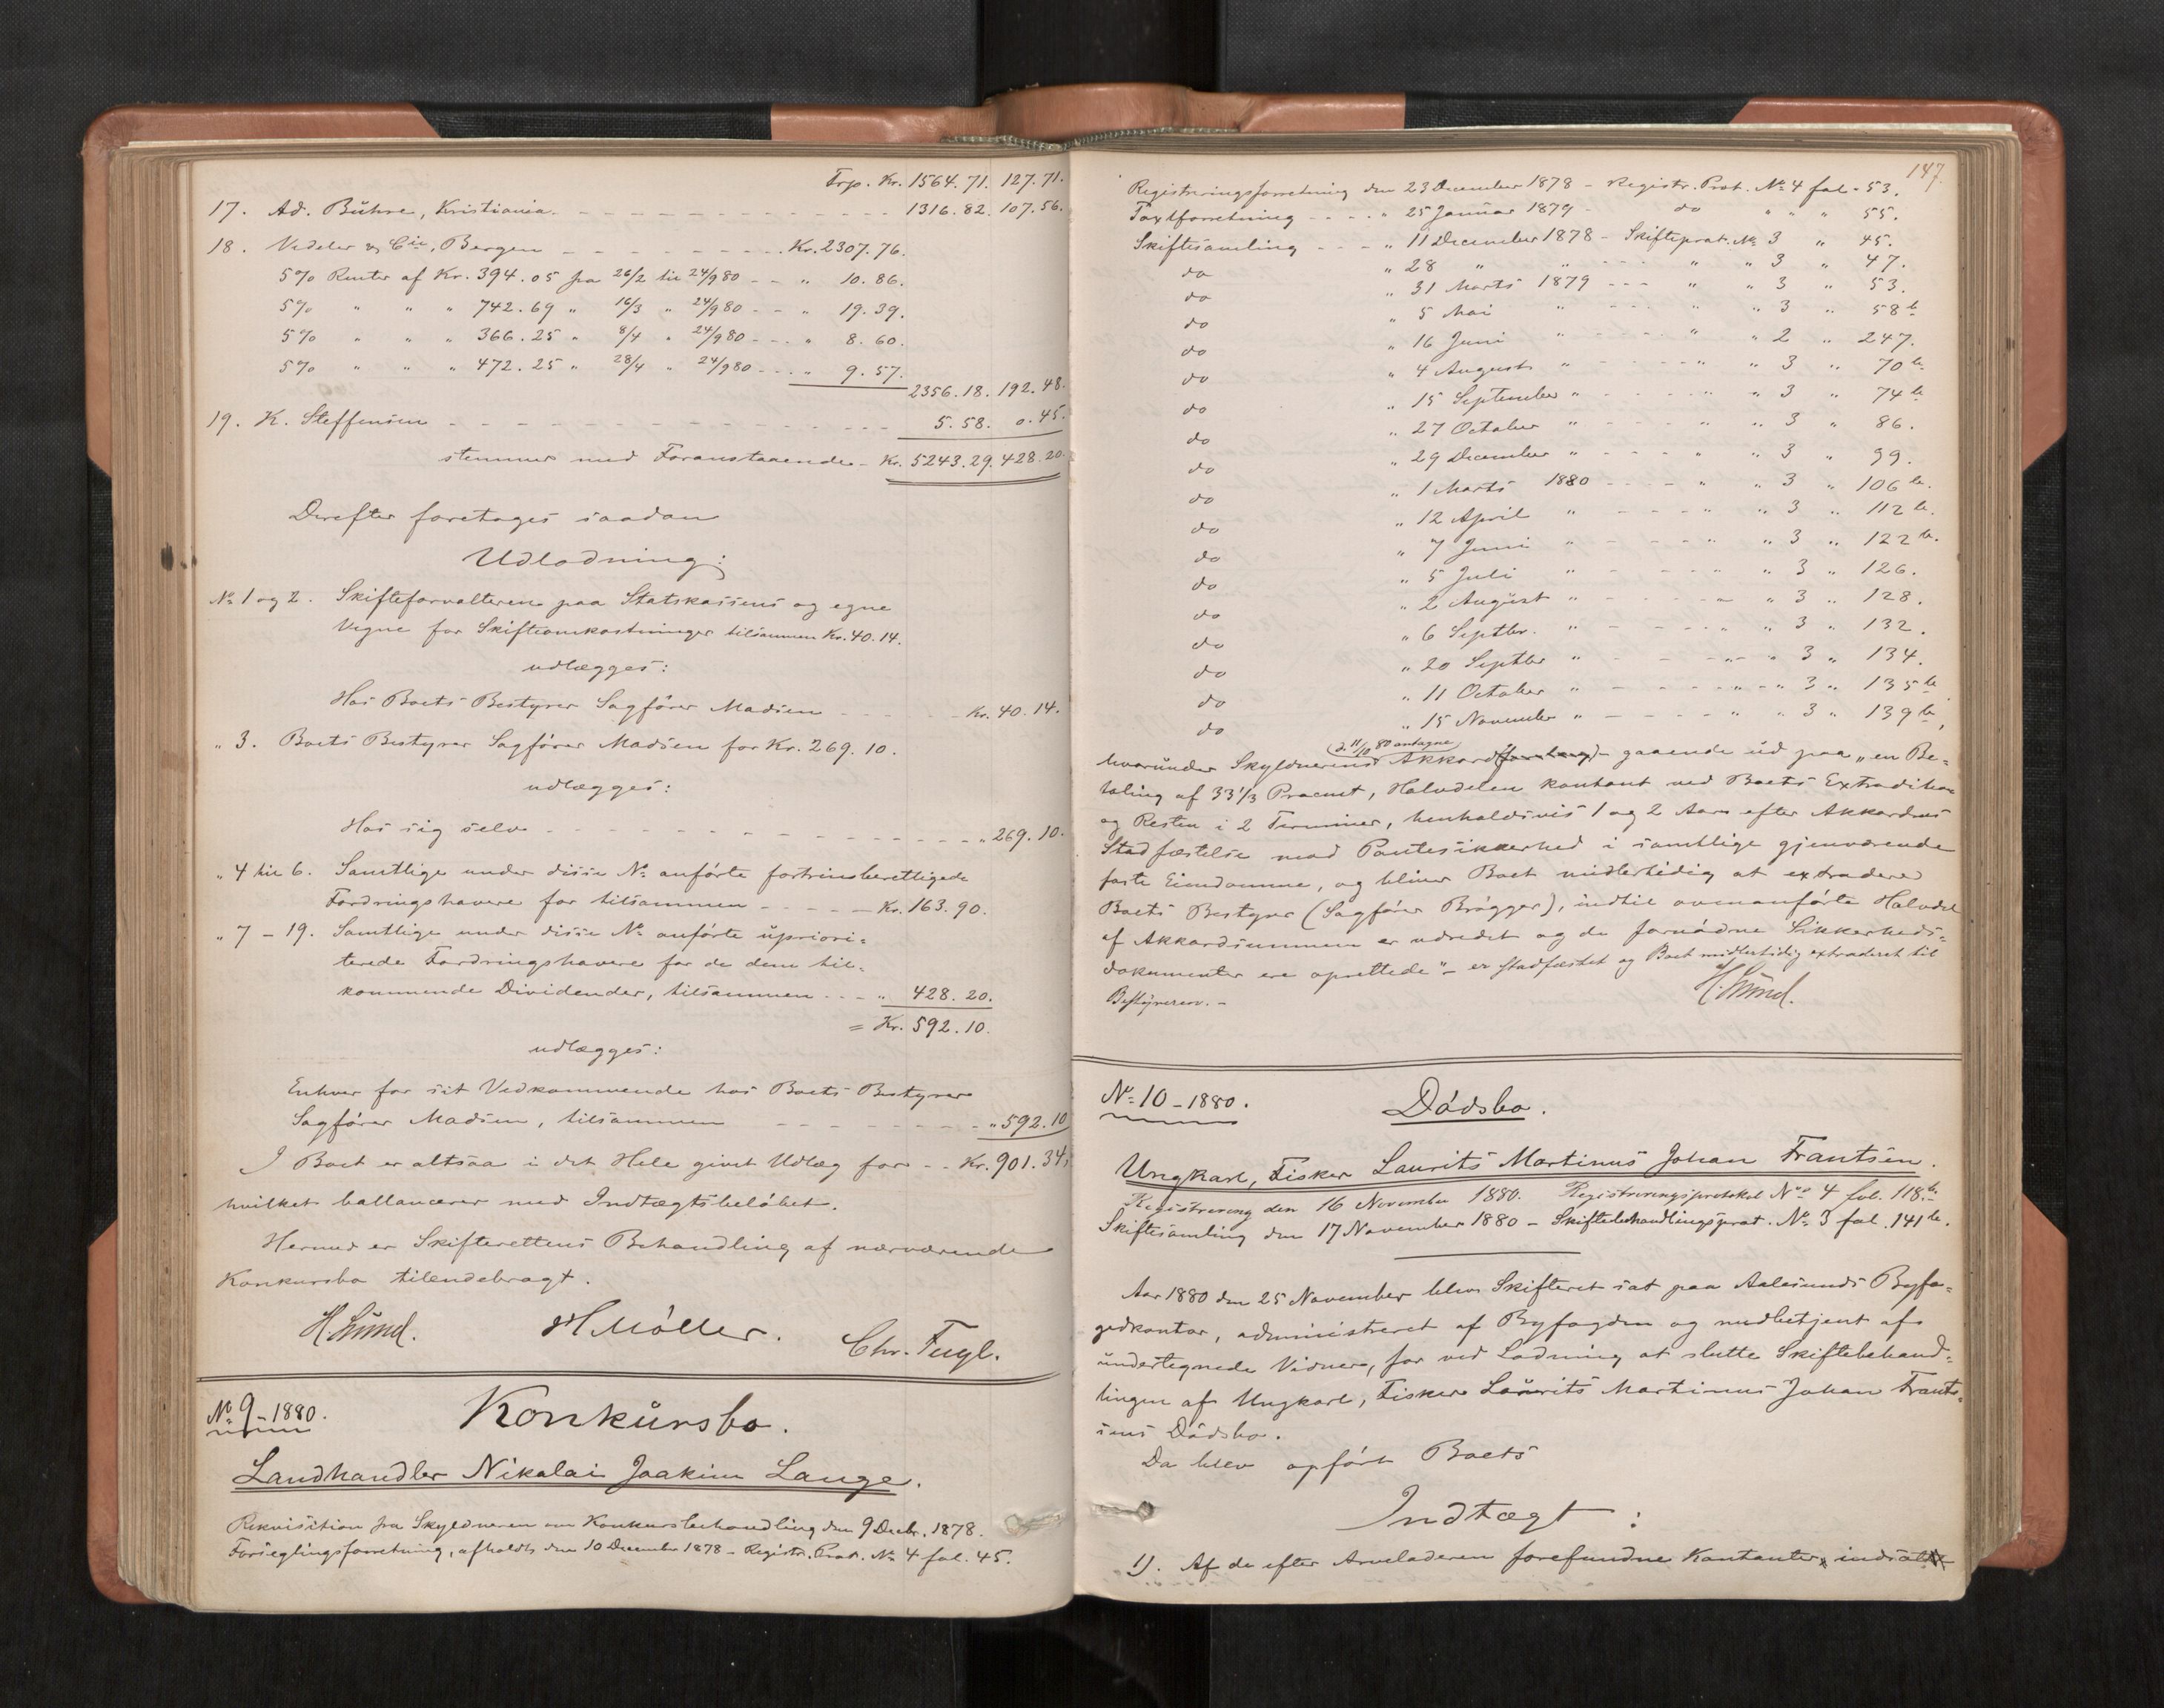 Trp. Kr. 1564.71. 127.71.
17. Ad. Bühre, Kristiania. - - - 1316.82. 107.56.
18. Vedeler & Cie, Bergen - - - Kr. 2307.76.
5% Renter af Kr. 394.05 fra 26/2 til 24/9 80 - - " 10.86.
5% " " " 742.69 " 16/3 " 24/9 80 - - " 19.39.
5% " " " 366.25 " 8/4 " 24/9 80 - - " 8.60.
5% " " " 472.25 " 28/4 " 24/9 80 - - " 9.57.
2356.18. 192.48.
19. K. Steffensen - - - 5.58. 0.45.
stemmer med Foranstaaende - Kr. 5243.29. 428.20.
Derefter foretages saadan
Udlodning:
No 1 og 2. Skifteforvalteren paa Statskassens og egne
Vegne for Skifteomkostninger tilsammen Kr. 40.14.
udlægges:
Hos Boets Bestyrer Sagfører Madsen - - - Kr. 40.14.
" 3. Boets Bestyrer Sagfører Madsen for Kr. 269.10.
udlægges:
Hos sig selv - - - " 269.10.
" 4 til 6. Samtlige under disse No anførte fortrinsberettigede
Fordringshavere for tilsammen - - - Kr. 163.90.
" 7 - 19. Samtlige under disse No anførte upriori=
terede Fordringshavere for de dem til=
kommende Dividender, tilsammen - - " 428.20.
= Kr. 592.10.
udlægges:
Enhver for sit Vedkommende hos Boets Bestyrer
Sagfører Madsen, tilsammen - - - " 592.10
I Boet er altsaa i det Hele givet Udlæg for - - Kr. 901.34,
hvilket ballancerer med Indtægtsbeløbet.
Hermed er Skifterettens Behandling af nærværende
Konkursbo tilendebragt.
H. Lund. H Møller. Chr. Fugl.
No 9 - 1880. Konkursbo.
Landhandler Nikolai Joakim Lange.
Rekvisition fra Skyldneren om Konkursbehandling den 9 Decbr. 1878.
Forseglingsforretning, afholdt den 10 December 1878 - Registr. Prot. No 4 fol. 45.
147.
Registreringsforretning den 23 December 1878 - Registr. Prot. No 4 fol. 53.
Taxtforretning - - - " 25 Januar 1879 - do " " " 55.
Skiftesamling - - - " 11 December 1878 - Skifteprot. No 3 " 45.
do " 28 " " - - - " " 3 " 47.
do " 31 Marts 1879 - - - " " 3 " 53.
do " 5 Mai " - - - " " 3 " 58 b
do " 16 Juni " - - - " " 2 " 247.
do " 4 August " - - - " " 3 " 70 b.
do " 15 September " - - - " " 3 " 74 b
do " 27 October " - - - " " 3 " 86.
do " 29 December " - - - " " 3 " 99.
do " 1 Marts 1880 - - - " " 3 " 106 b.
do " 12 April " - - - " " 3 " 112 b.
do " 7 Juni " - - - " " 3 " 122 b.
do " 5 Juli " - - - " " 3 " 126.
do " 2 August " - - - " " 3 " 128.
do " 6 Septbr. " - - - " " 3 " 132.
do " 20 Septbr " - - - " " 3 " 134.
do " 11 October " - - - " " 3 " 135 b
do " 15 November " - - - " " 3 " 139 b,
(d. 11/10 80 antagne)
hvorunder Skyldnerens Akkord(forslag) - gaaende ud paa "en Be=
taling af 33 1/3 Procent, Halvdelen kontant ved Boets Extradition
og Resten i 2 Terminer, henholdsvis 1 og 2 Aar efter Akkordens
Stadfæstelse mod Pantesikkerhed i samtlige gjenværende
faste Eiendomme, og bliver Boet midlertidig at extradere
Boets Bestyrer (Sagfører Brøgger), indtil ovenanførte Halvdel
af Akkordsummen er udredet og de fornødne Sikkerheds=
dokumenter ere oprettede" - er stadfæstet og Boet midlertidig extraderet til
Bestyreren. -
H. Lund.
No 10 - 1880. Dødsbo.
Ungkarl, Fisker Laurits Martinus Johan Frantsen.
Registrering den 16 November 1880. Registreringsprotokol No 4 fol. 118 b.
Skiftesamling den 17 November 1880 - Skiftebehandlingsprot. No 3 fol. 141 b.
Aar 1880 den 25 November blev Skifteret sat paa Aalesunds Byfo=
gedkontor, administreret af Byfogden og medbetjent af
undertegnede Vidner, for ved Lodning at slutte Skiftebehand=
lingen af Ungkarl, Fisker Laurits Martinus Johan Frant=
sens Dødsbo.
Da blev opført Boets
Indtægt:
1). Af de efter Arveladeren forefundne Kontanter, indsat